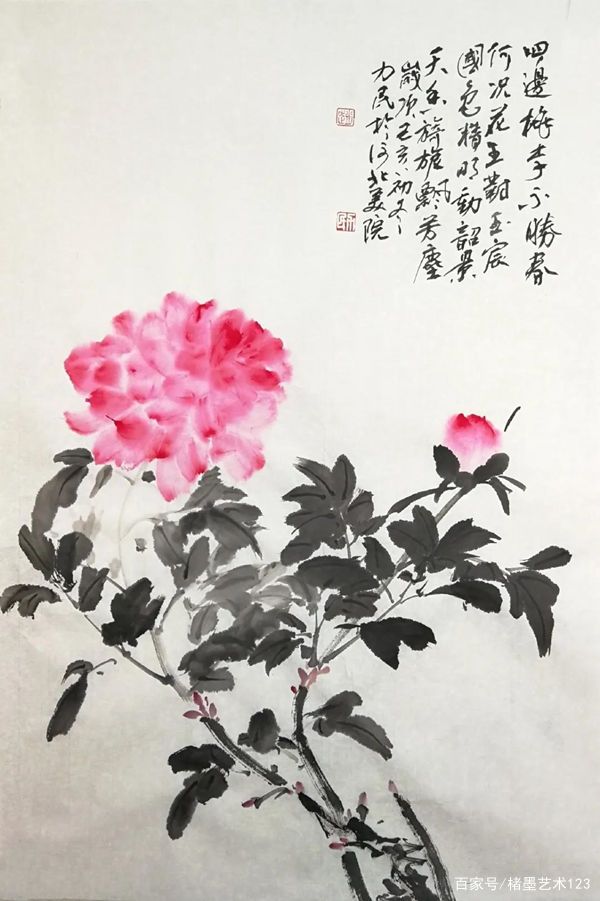 四邊桃李不勝春
何况花王對玉宸
國色精明動韶景
天香旖旎飄芳塵
歲次己亥初冬
力民於河北美院
百家号/楮墨艺术123